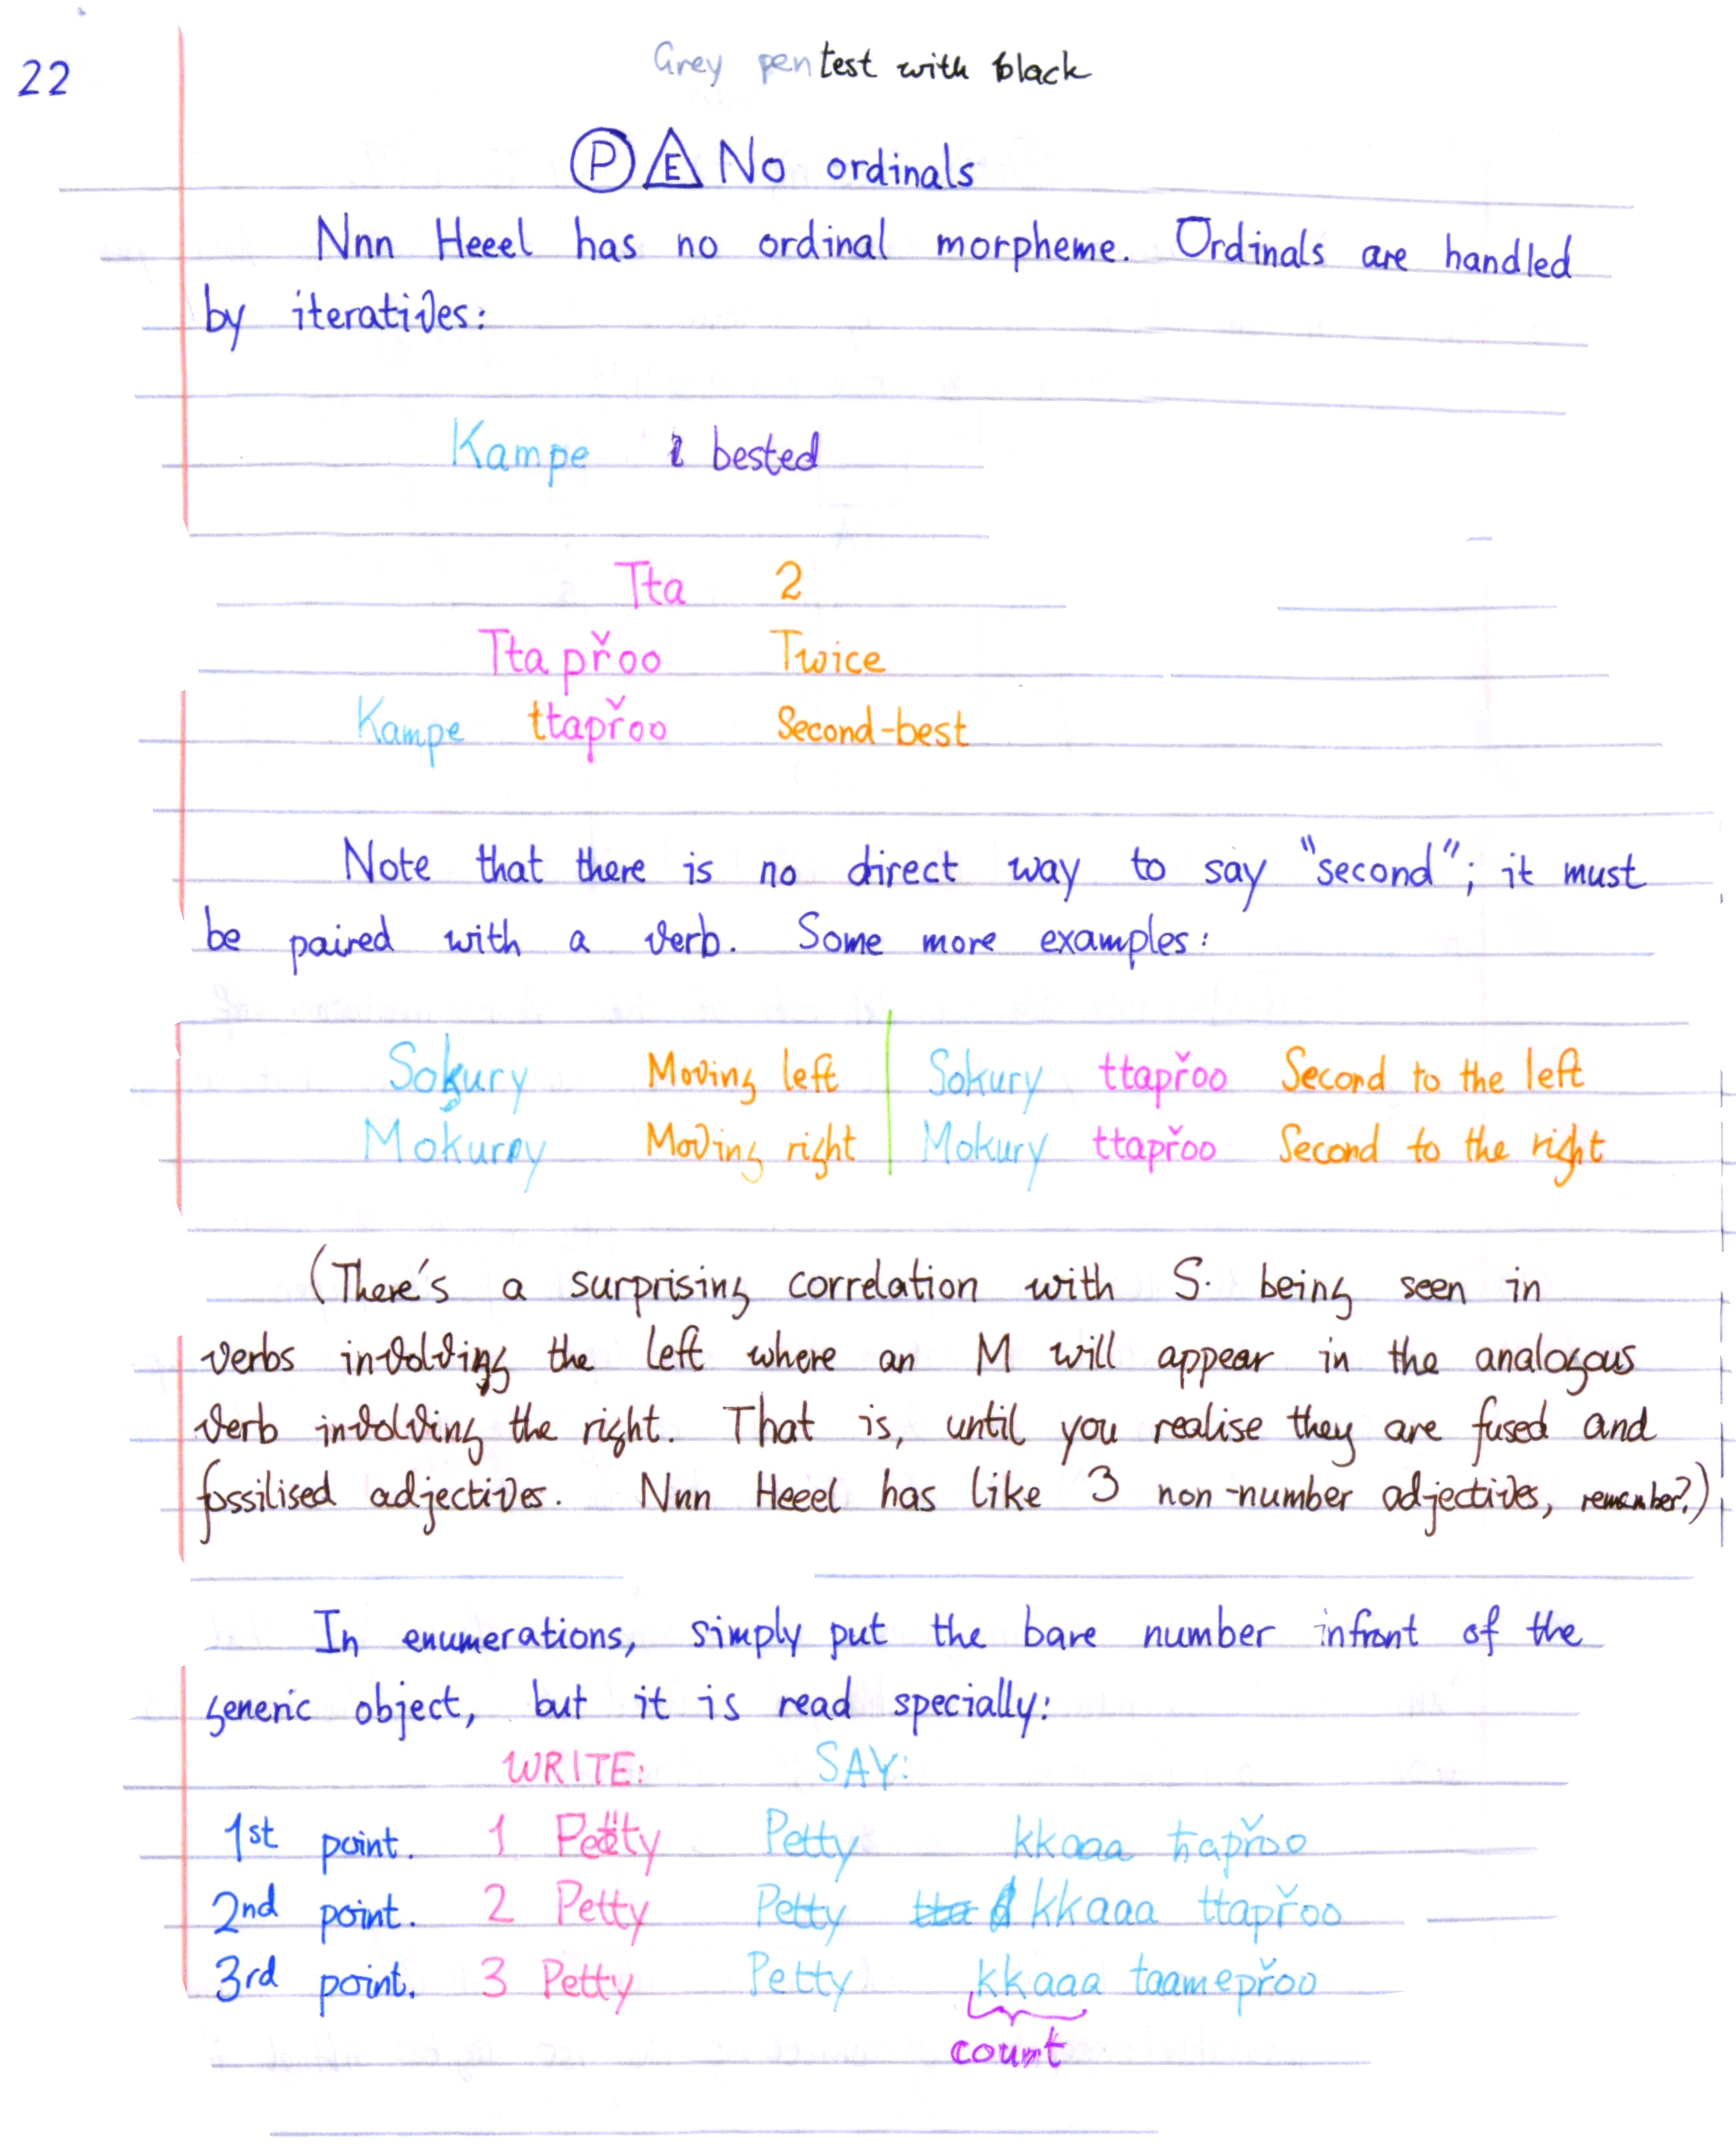 22
Grey pen test with black
P E No ordinals
Nnn Heeel has no ordinal morpheme. Ordinals are handled
by iteratives:
Kampe bested
Tta 2
Ttapřoo Twice
Kampe ttapřoo Second-best
Note that there is no direct way to say "second"; it must
be paired with a verb. Some more examples:
Sokury Moving left Sokury ttapřoo Second to the left
Mokury Moving right Mokury ttapřoo Second to the right
(There's a surprising correlation with S. being seen in
verbs involving the left where an M will appear in the analogous
verb involving the right. That is, until you realise they are fused and
fossilised adjectives. Nnn Heeel has like 3 non-number adjectives, remember?)
In enumerations, simply put the bare number infront of the
generic object, but it is read specially:
WRITE: SAY:
1st point. 1 Petty Petty kkaaa ŧapřoo
2nd point. 2 Petty Petty kkaaa ttapřoo
3rd point. 3 Petty Petty kkaaa taamepřoo
count